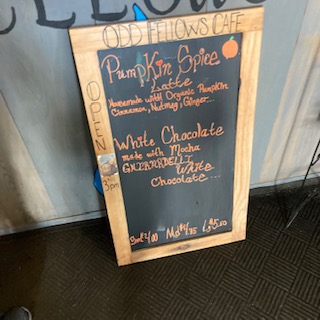 ODD FELLOWS CAFE
OPEN
3pm
PumpKin Spice
Latte
Homemade with Organic Pumpkin
Cinnamon, Nutmeg, Ginger...
White Chocolate
made with Mocha
GHIRARDELLI
White
Chocolate...
Md $4.75 L $5.50